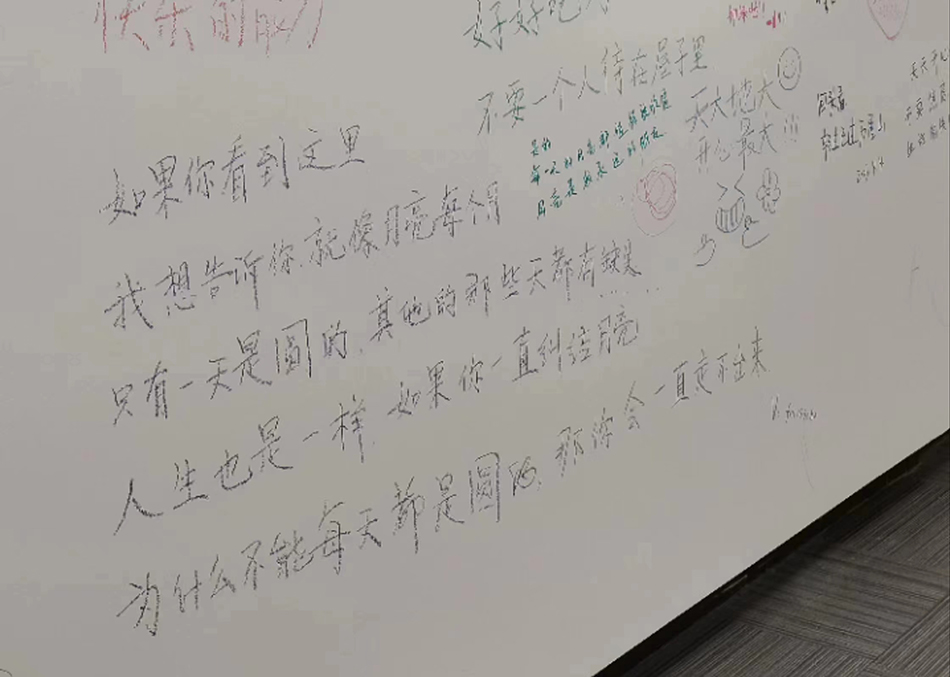 快乐
好好吃
不要一个人待在屋子里
如果你看到这里
我想告诉你,就像月亮每个月
只有一天是圆的,其他的那些天都有缺
人生也是一样,如果你一直纠结月亮
为什么不能每天都是圆的,那你会一直走不出来
天大地大
开心最大
是的
月亮是我永远的朋友
天天开心